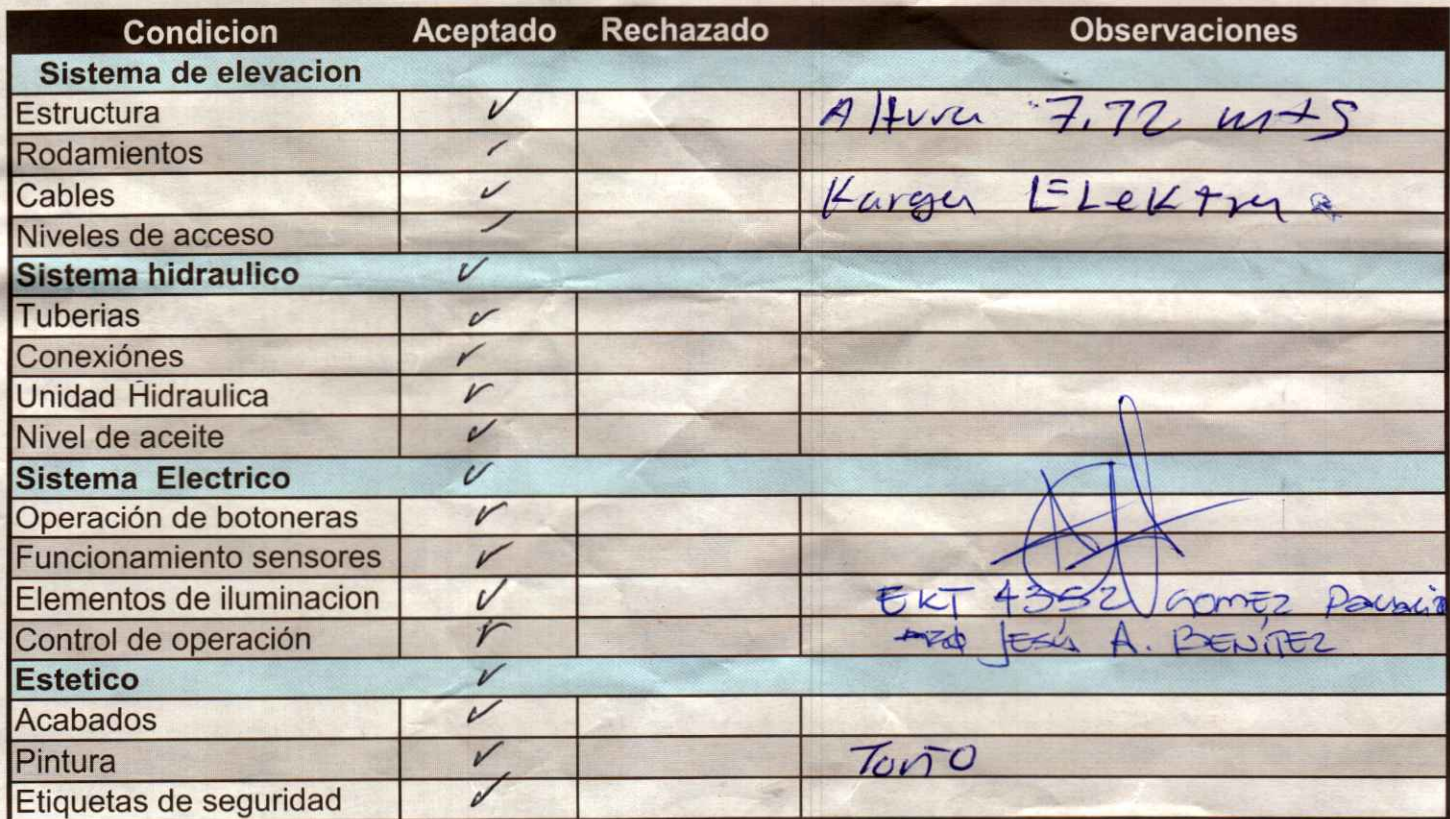 Condicion Aceptado Rechazado Observaciones
Sistema de elevacion
Estructura ✓ Altura 7.72 mts
Rodamientos ✓
Cables ✓ Karga ELeKtra
Niveles de acceso ✓
Sistema hidraulico ✓
Tuberias ✓
Conexiónes ✓
Unidad Hidraulica ✓
Nivel de aceite ✓
Sistema Electrico ✓
Operación de botoneras ✓
Funcionamiento sensores ✓
Elementos de iluminacion ✓ EKT 4352 GOMEZ Palacio
Control de operación ✓ JESÚS A. BENITEZ
Estetico ✓
Acabados ✓
Pintura ✓
Etiquetas de seguridad ✓